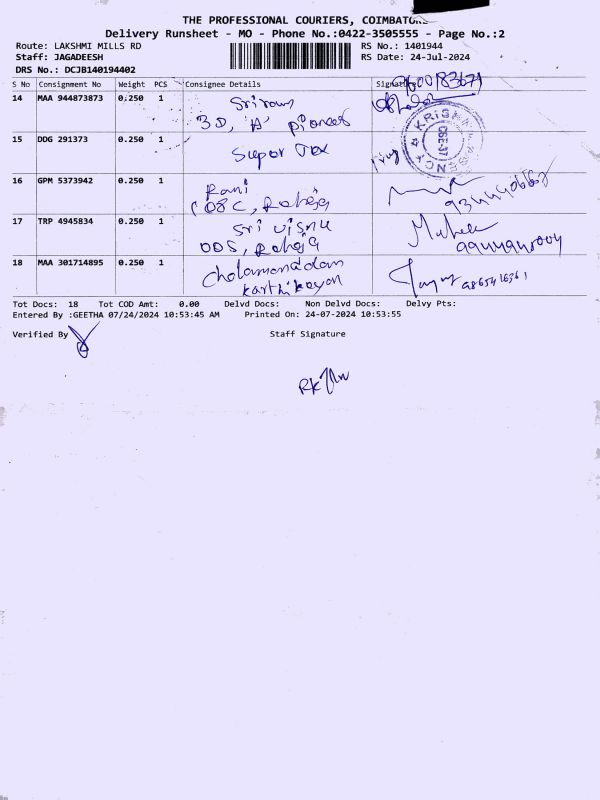 THE PROFESSIONAL COURIERS, COIMBATORE
Delivery Runsheet - MO - Phone No.:0422-3505555 - Page No.:2
Route: LAKSHMI MILLS RD RS No.: 1401944
Staff: JAGADEESH RS Date: 24-Jul-2024
DRS No.: DCJB140194402
S No Consignment No. Weight PCS Consignee Details Signature
14 MAA 944873873 0.250 1 Sriram
3D, 'A' pioneer
15 DDG 291373 0.250 1 Super Tex
16 GPM 5373942 0.250 1 Rani
108C, Raheja
17 TRP 4945834 0.250 1 Sri Visnu
00S, Raheja
18 MAA 301714895 0.250 1 Cholamanadam
Karthikeyan
Tot Docs: 18 Tot COD Amt: 0.00 Delvd Docs: Non Delvd Docs: Delvy Pts:
Entered By :GEETHA 07/24/2024 10:53:45 AM Printed On: 24-07-2024 10:53:55
Verified By Staff Signature